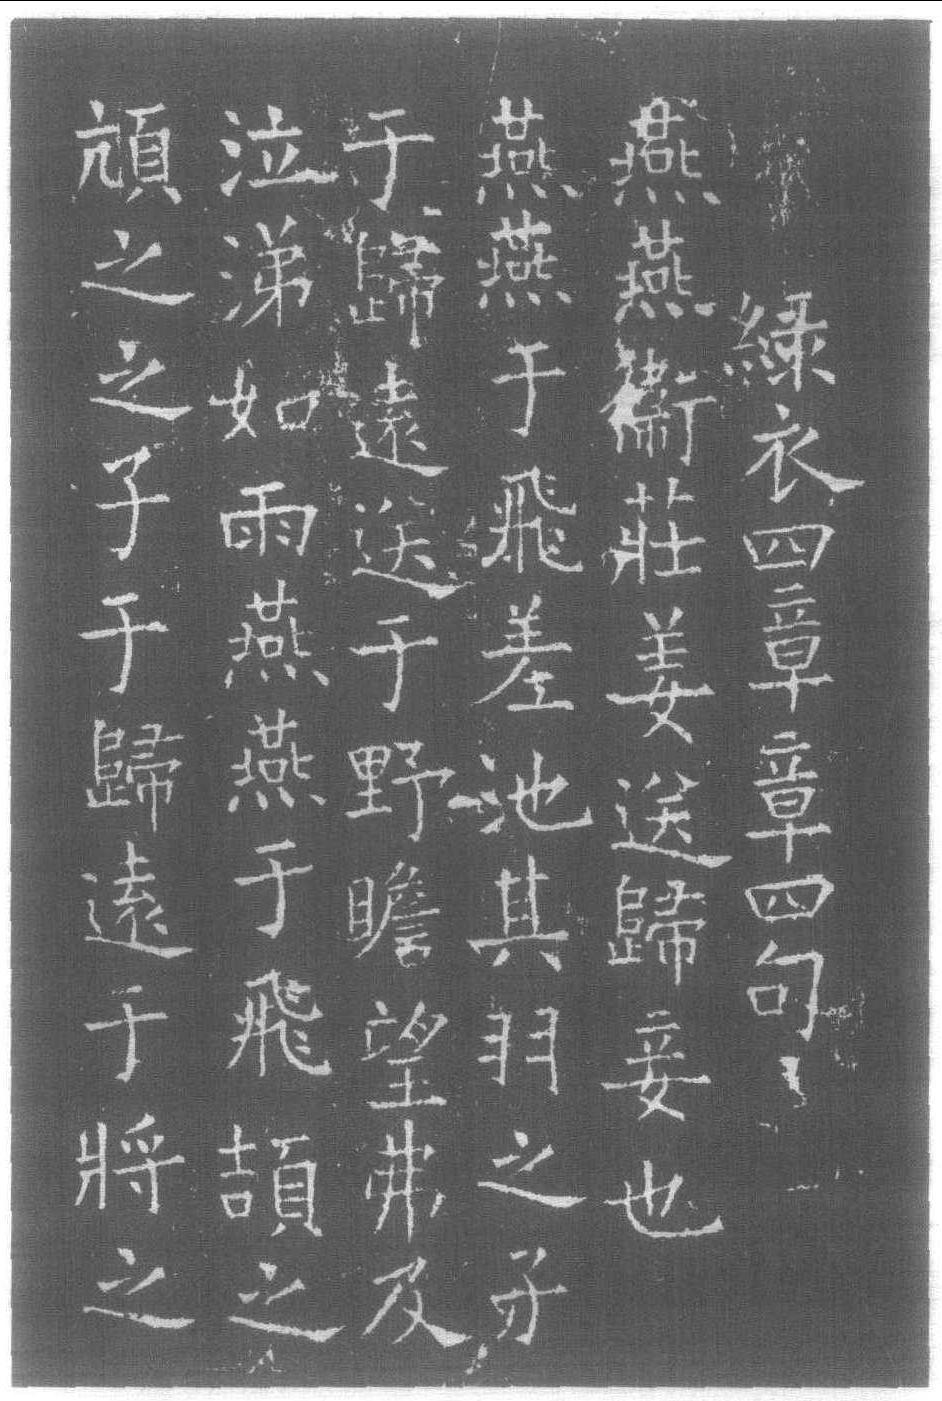 綠衣四章章四句
燕燕衞莊姜送歸妾也
燕燕于飛差池其羽之子
于歸遠送于野瞻望弗及
泣涕如雨燕燕于飛頡之
頏之之子于歸遠于將之